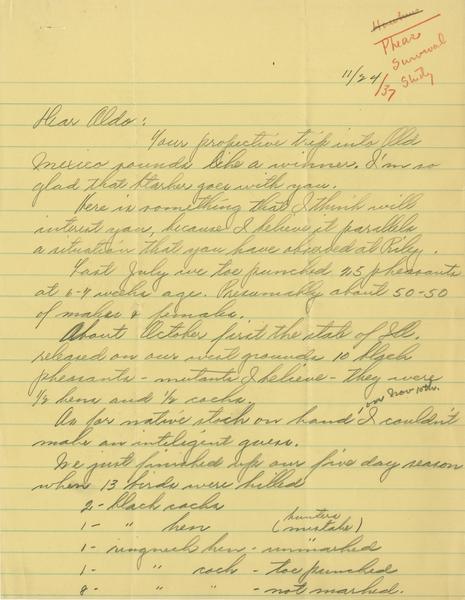 Hawkins
Pheas
Survival
Study
11/24/37
Dear Aldo:
Your prospective trip into Old
Mexico sounds like a winner. I'm so
glad that Starker goes with you.
Here is something that I think will
interest you, because I believe it parallels
a situation that you have observed at Riley.
Last July we toe punched 25 pheasants
at 6-7 weeks age. Presumably about 50-50
of males & females.
About October first the state of Ill.
released on our west grounds 10 black
pheasants - mutants I believe - they were
1/2 hens and 1/2 cocks.
on Nov 10th.
As for native stock on hand I couldn't
make an inteligent guess.
We just finished up our five day season
when 13 birds were killed
2 - black cocks
1 - " hen (hunters mistake)
1 - ringneck hen - unmarked
1 - " cock - toe punched
8 - " " - not marked.